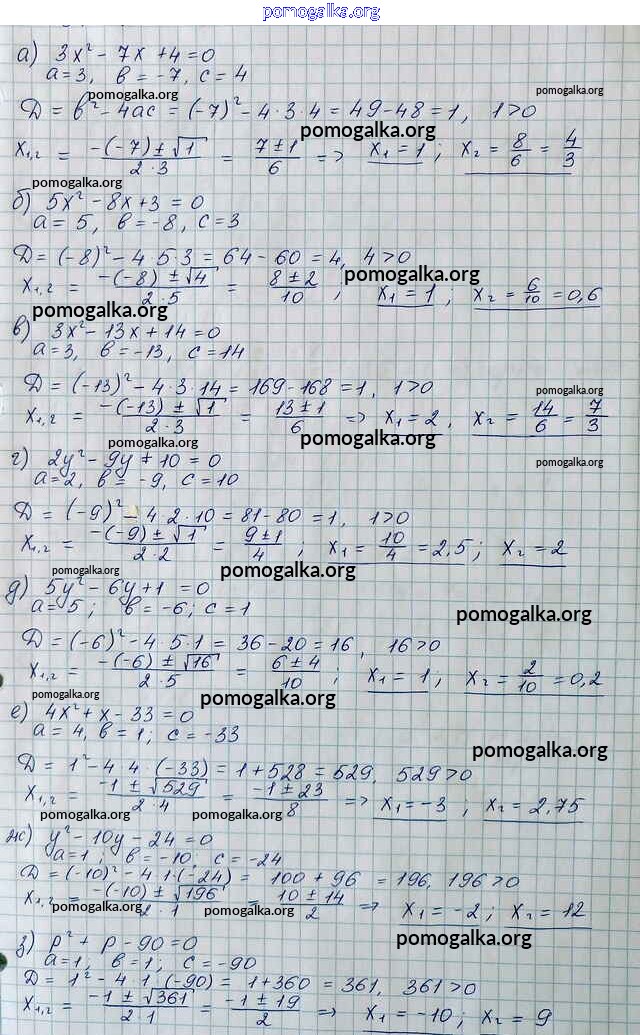 pomogalka.org
а) 3x² - 7x + 4 = 0
a = 3, b = -7, c = 4
pomogalka.org
D = b² - 4ac = (-7)² - 4·3·4 = 49 - 48 = 1, 1>0
pomogalka.org
x₁,₂ = (-(-7) ± √1)/(2·3) = (7 ± 1)/6 => x₁ = 1; x₂ = 8/6 = 4/3
pomogalka.org
б) 5x² - 8x + 3 = 0
a = 5, b = -8, c = 3
D = (-8)² - 4·5·3 = 64 - 60 = 4, 4>0
x₁,₂ = (-(-8) ± √4)/(2·5) = (8 ± 2)/10; x₁ = 1; x₂ = 6/10 = 0,6
pomogalka.org
pomogalka.org
в) 3x² - 13x + 14 = 0
a = 3, b = -13, c = 14
D = (-13)² - 4·3·14 = 169 - 168 = 1, 1>0
pomogalka.org
x₁,₂ = (-(-13) ± √1)/(2·3) = (13 ± 1)/6 => x₁ = 2, x₂ = 14/6 = 7/3
pomogalka.org
pomogalka.org
г) 2y² - 9y + 10 = 0
pomogalka.org
a = 2, b = -9, c = 10
D = (-9)² - 4·2·10 = 81 - 80 = 1, 1>0
x₁,₂ = (-(-9) ± √1)/(2·2) = (9 ± 1)/4; x₁ = 10/4 = 2,5; x₂ = 2
pomogalka.org
pomogalka.org
д) 5y² - 6y + 1 = 0
a = 5; b = -6; c = 1
pomogalka.org
D = (-6)² - 4·5·1 = 36 - 20 = 16, 16>0
x₁,₂ = (-(-6) ± √16)/(2·5) = (6 ± 4)/10; x₁ = 1; x₂ = 2/10 = 0,2
pomogalka.org
pomogalka.org
е) 4x² + x - 33 = 0
a = 4, b = 1; c = -33
pomogalka.org
D = 1² - 4·4·(-33) = 1 + 528 = 529, 529>0
x₁,₂ = (-1 ± √529)/(2·4) = (-1 ± 23)/8 => x₁ = -3; x₂ = 2,75
pomogalka.org
pomogalka.org
pomogalka.org
ж) y² - 10y - 24 = 0
a = 1; b = -10, c = -24
D = (-10)² - 4·1·(-24) = 100 + 96 = 196, 196>0
x₁,₂ = (-(-10) ± √196)/(2·1) = (10 ± 14)/2 => x₁ = -2; x₂ = 12
pomogalka.org
pomogalka.org
pomogalka.org
з) p² + p - 90 = 0
a = 1, b = 1; c = -90
D = 1² - 4·1·(-90) = 1 + 360 = 361, 361>0
x₁,₂ = (-1 ± √361)/(2·1) = (-1 ± 19)/2 => x₁ = -10; x₂ = 9